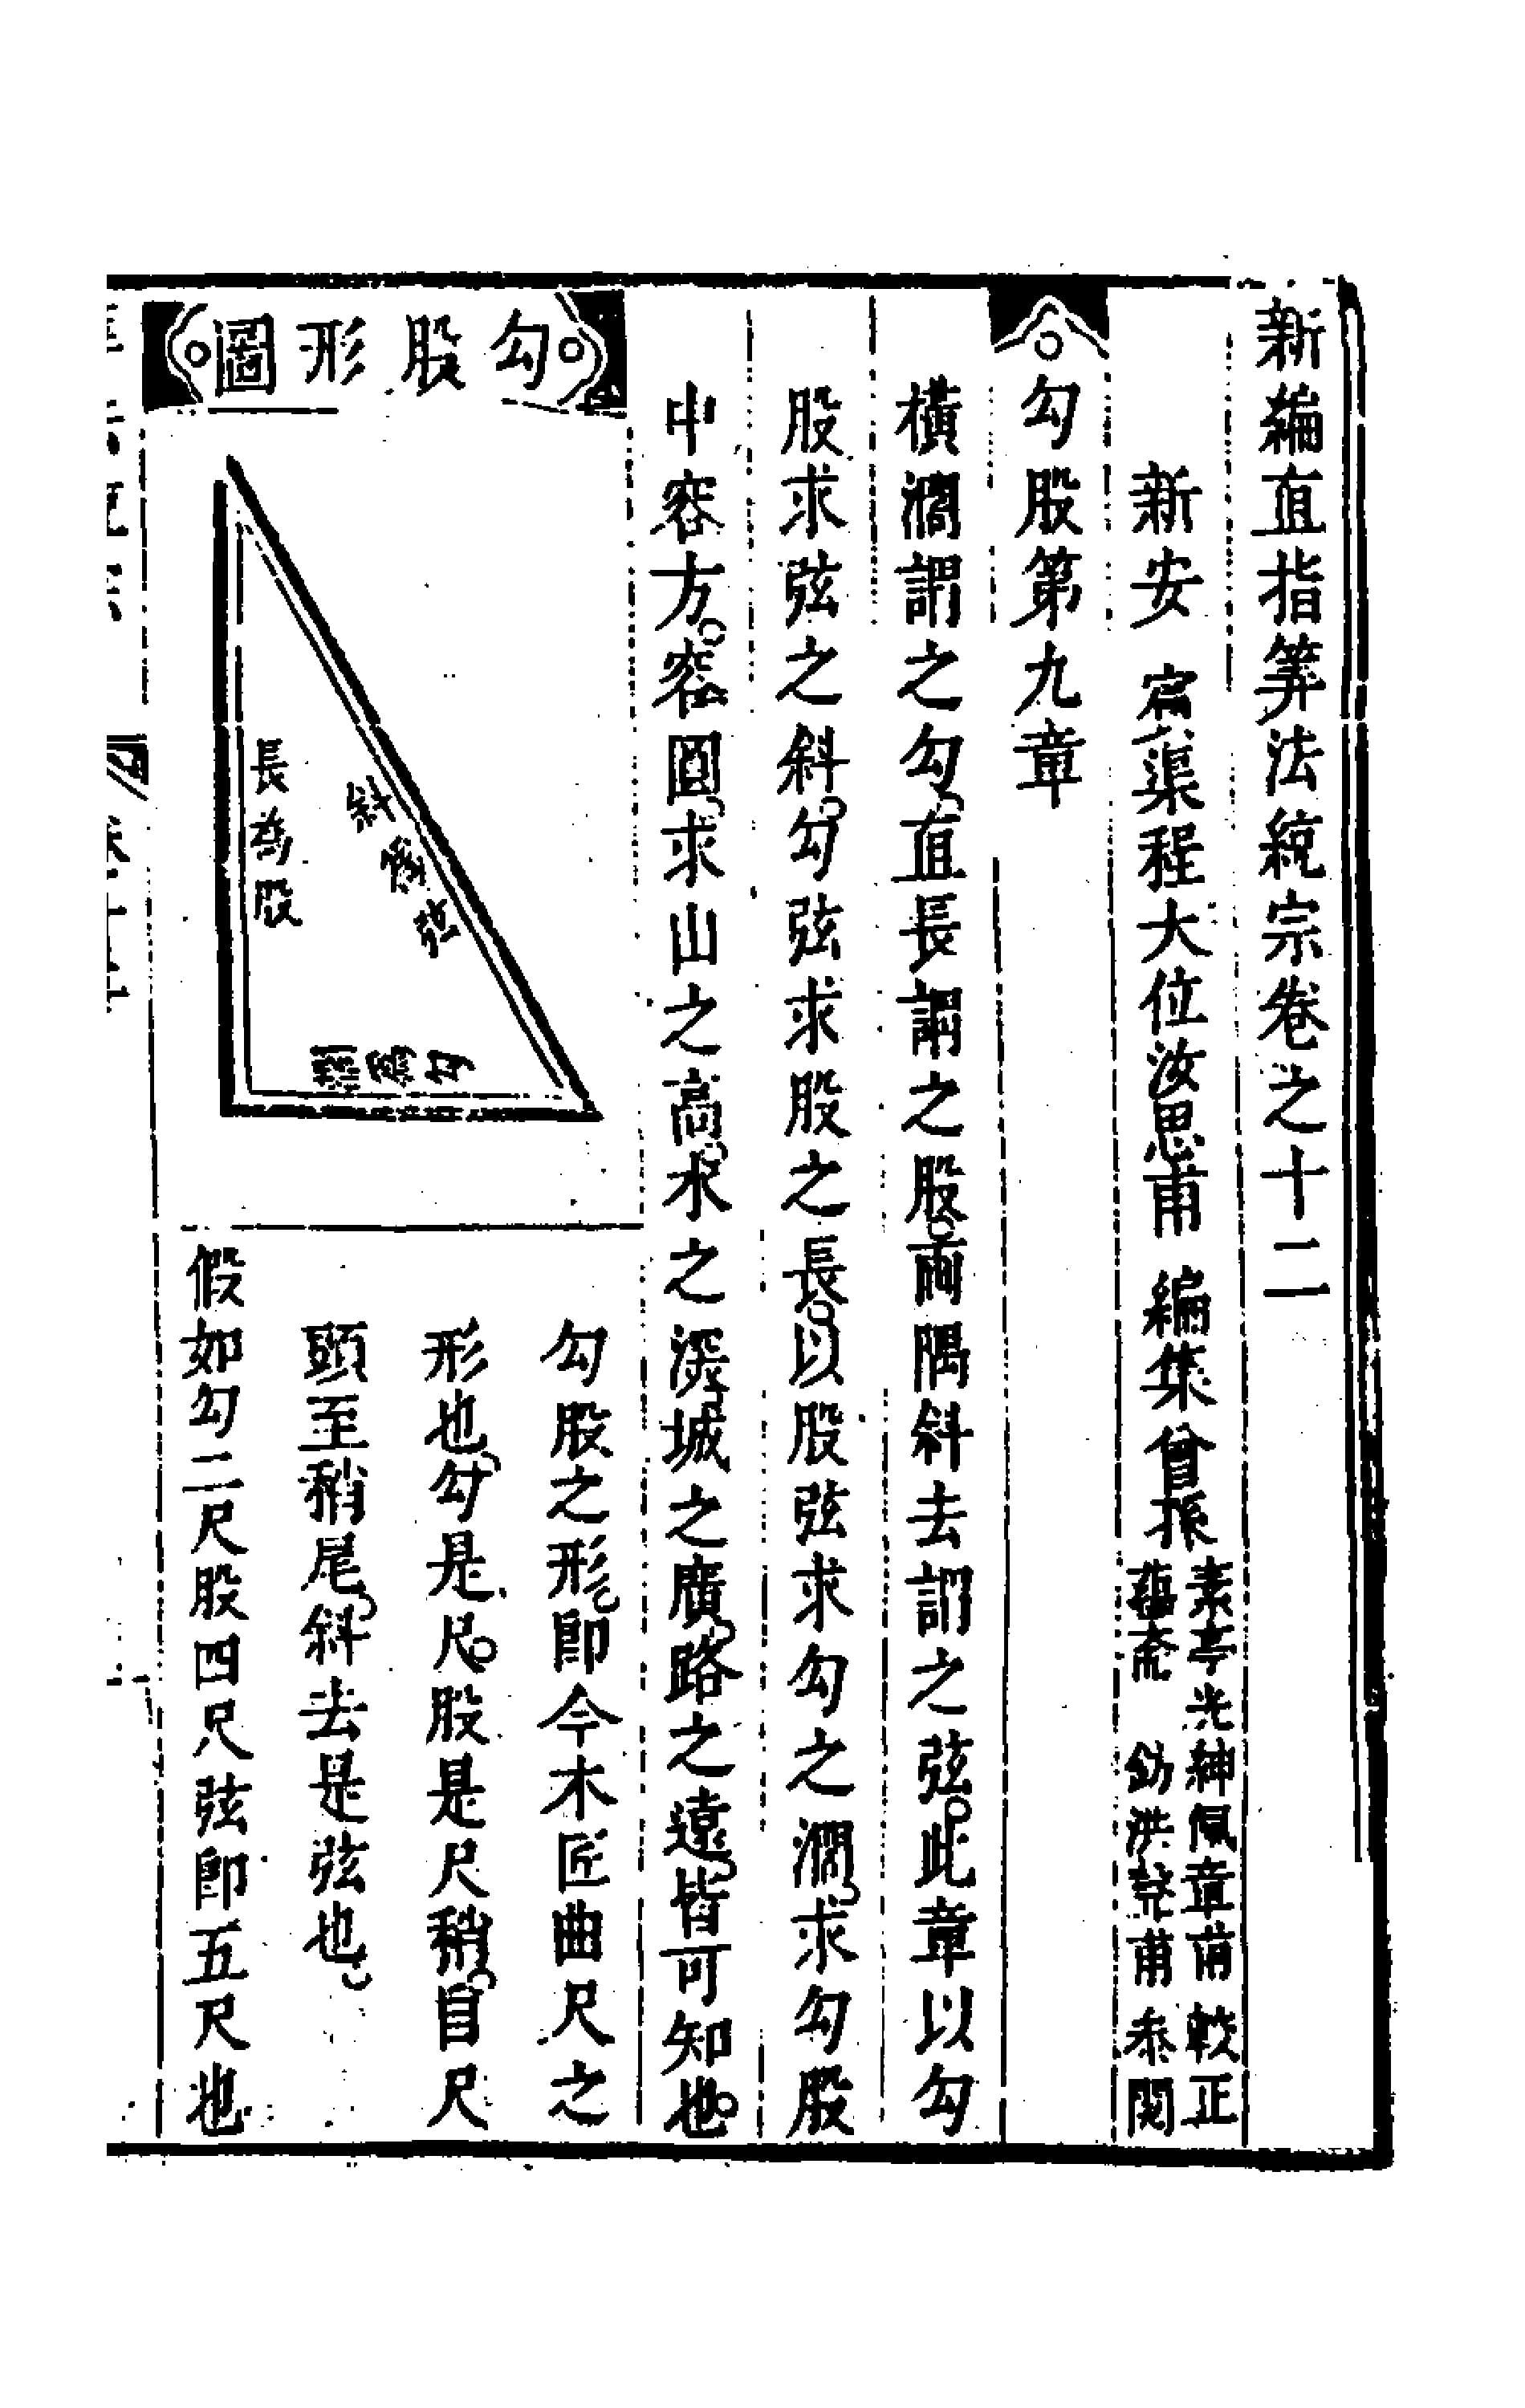 新編直指筭法統宗卷之十二
新安 賔渠程大位汝思甫 編集 曾孫
素亭光紳佩章甫 較正
蘊斋 鈁洪聲甫 叅閱
勾股第九章
橫濶謂之勾直長謂之股兩隅斜去謂之弦此章以勾
股求弦之斜勾弦求股之長以股弦求勾之濶求勾股
中容方容圓求山之高水之深城之廣路之遠皆可知也
勾股形圖
長為股
斜為弦
濶為勾
勾股之形即今木匠曲尺之
形也勾是尺股是尺稍自尺
頭至稍尾斜去是弦也
假如勾三尺股四尺弦即五尺也